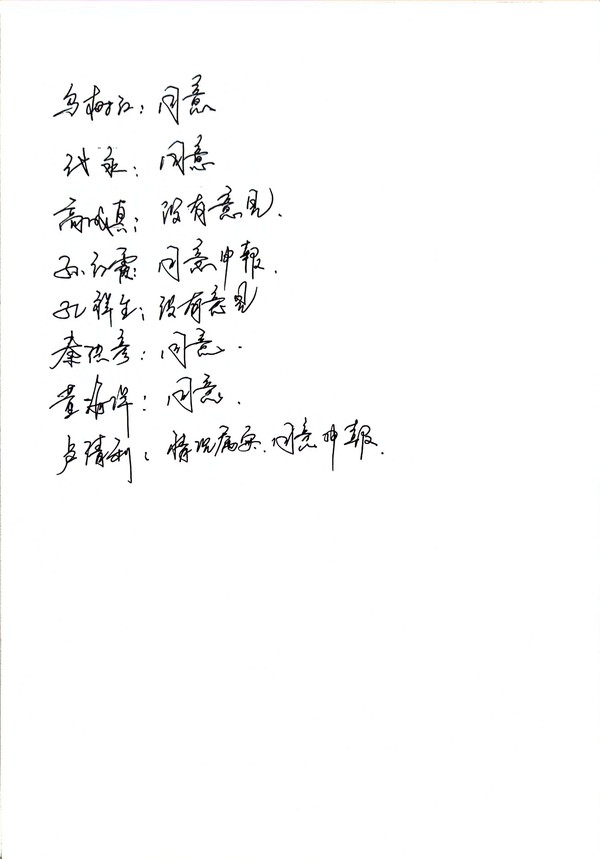 乌树红：同意
代永：同意
高成真：没有意见.
孙红霞：同意申报.
孔祥生：没有意见
秦洪彦：同意.
黄海洋：同意.
卢清利：情况属实.同意申报.